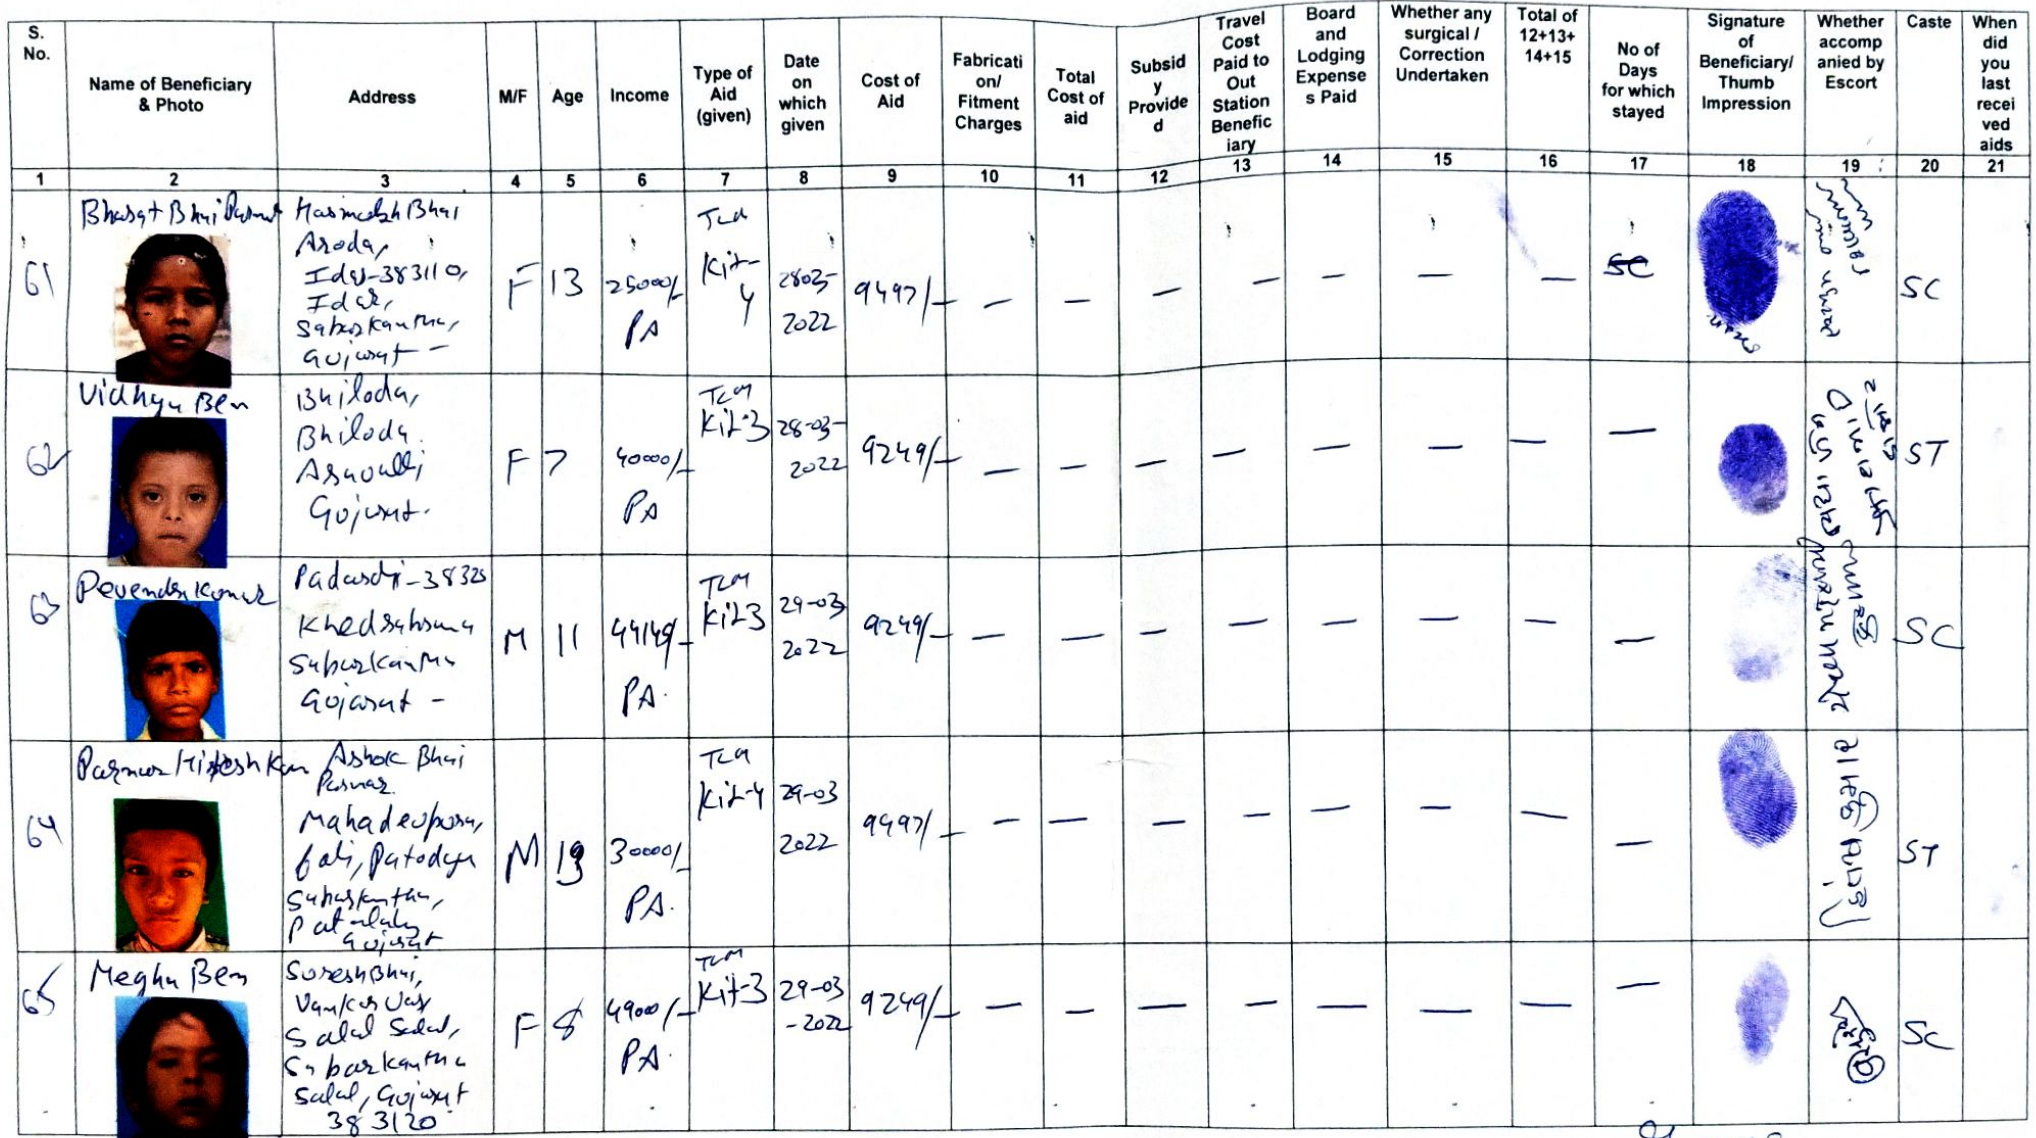 S. No.
Name of Beneficiary & Photo
Address
M/F
Age
Income
Type of Aid (given)
Date on which given
Cost of Aid
Fabricati on/ Fitment Charges
Total Cost of aid
Subsid y Provide d
Travel Cost Paid to Out Station Benefic iary
Board and Lodging Expense s Paid
Whether any surgical / Correction Undertaken
Total of 12+13+ 14+15
No of Days for which stayed
Signature of Beneficiary/ Thumb Impression
Whether accomp anied by Escort
Caste
When did you last recei ved aids
1 2 3 4 5 6 7 8 9 10 11 12 13 14 15 16 17 18 19 20 21
61
Bharat Bhai
Aroda,
Idar,
Sabarkantha,
Gujarat -
F 13 25000/- PA
TLM Kit-4
2803-2022
9497/- — — — — — — — SC
SC
62
Vidhya Ben
Bhiloda,
Bhiloda
Gujarat.
F 7 40000/- PA
TLM Kit-3
28-03-2022
9249/- — — — — — — — —
ST
63
Padardi-38325
Khedbrahma
Sabarkantha
Gujarat -
M 11 44149/- PA.
TLM Kit-3
29-03 2022
9249/- — — — — — — — —
SC
64
Parmar Hitesh
Ashok Bhai
Parmar
Mahadevpura,
Sabarkantha,
Gujarat
M 13 30000/- PA.
TLM Kit-4
29-03 2022
9497/- — — — — — — — —
ST
65
Megha Ben
Suresh Bhai,
Vankar Vas
Salal Salal,
Sabarkantha
Salal, Gujarat
383120
F 8 49000/- PA.
TLM Kit-3
29-03 -2022
9249/- — — — — — — — —
SC